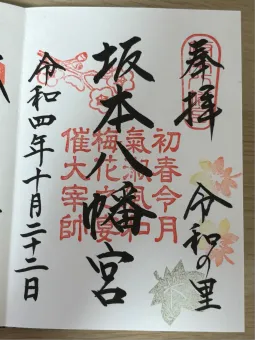 奉拝
令和の里
坂本八幡宮
初春令月
氣淑風和
梅花の宴
催大宰帥
令和四年十月二十二日